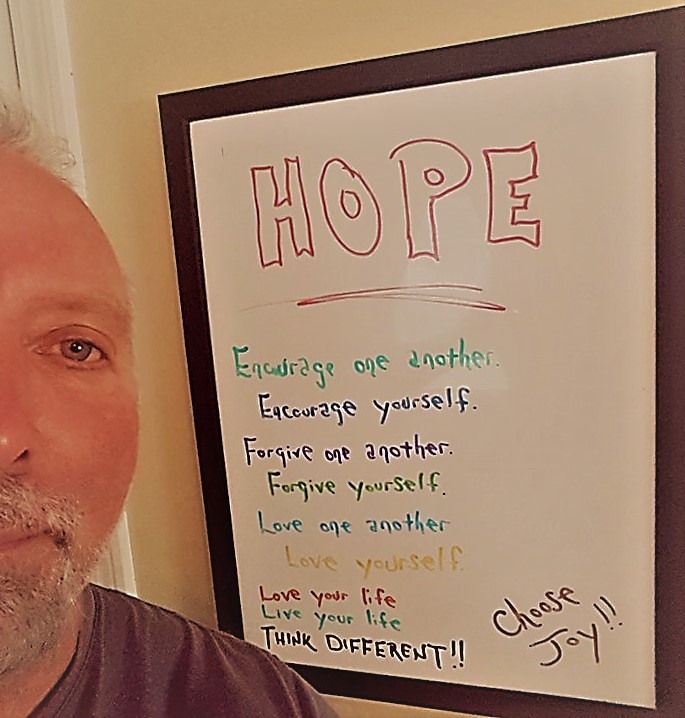 HOPE
Encourage one another.
Encourage yourself.
Forgive one another.
Forgive yourself.
Love one another
Love yourself.
Love your life
Live your life
THINK DIFFERENT!!
Choose
Joy!!